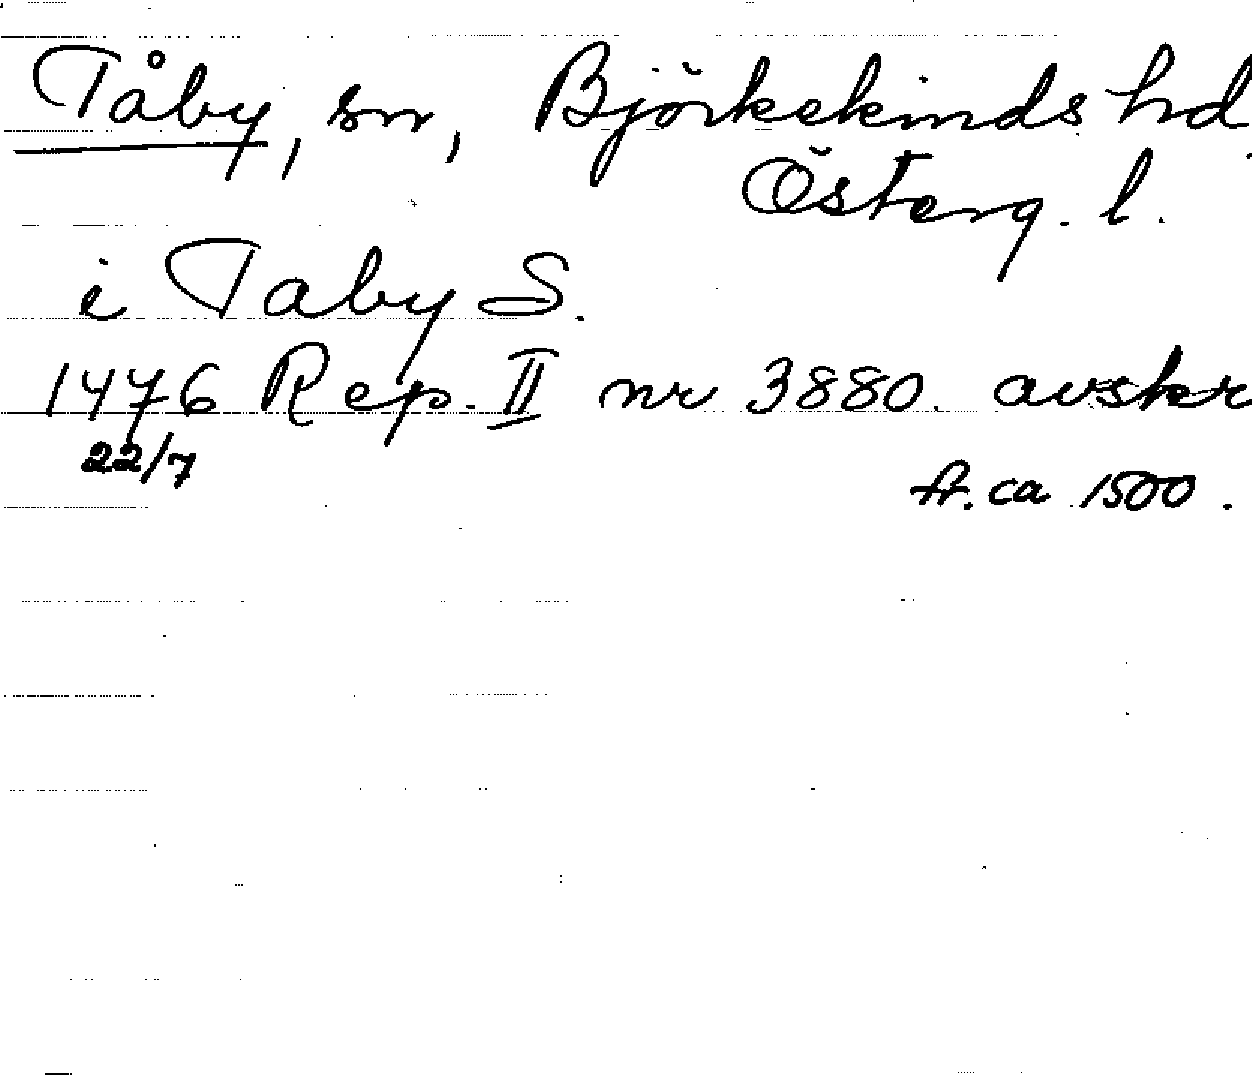 Tåby, sn, Björkekinds hd.
Österg. l.
i Taby S.
1476 Rep. II nr 3880. avskr
22/7
fr. ca 1500.